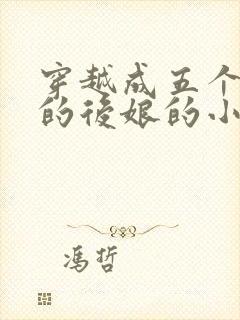 穿越成五个
的後娘的小
冯哲